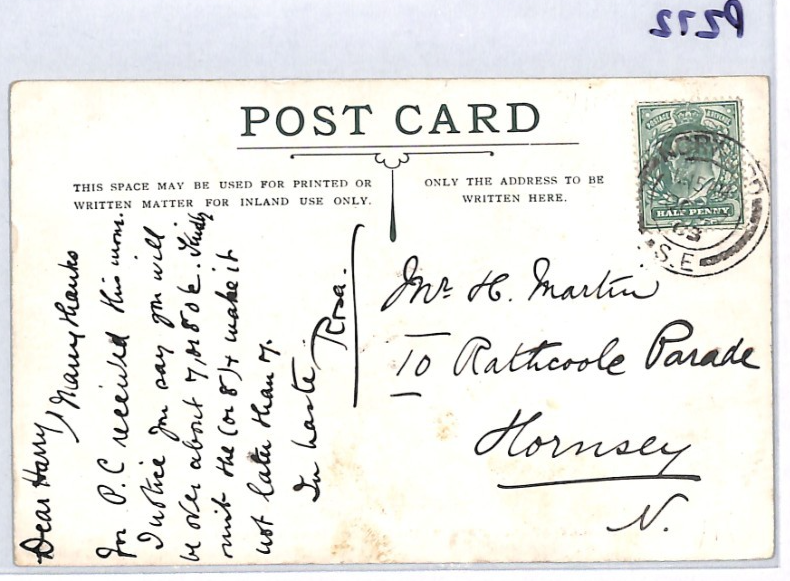 PZ72
POST CARD
THIS SPACE MAY BE USED FOR PRINTED OR
WRITTEN MATTER FOR INLAND USE ONLY.
ONLY THE ADDRESS TO BE
WRITTEN HERE.
POSTAGE & REVENUE
HALF PENNY
NORWOOD
03
S.E
Dear Harry, Many thanks
for P.C received this morn.
I notice you say you will
be over about 7, or 8 o/c. Kindly
omit the (or 8) & make it
not later than 7.
In haste
Rosa.
Mr H. Martin
10 Rathcoole Parade
Hornsey
N.